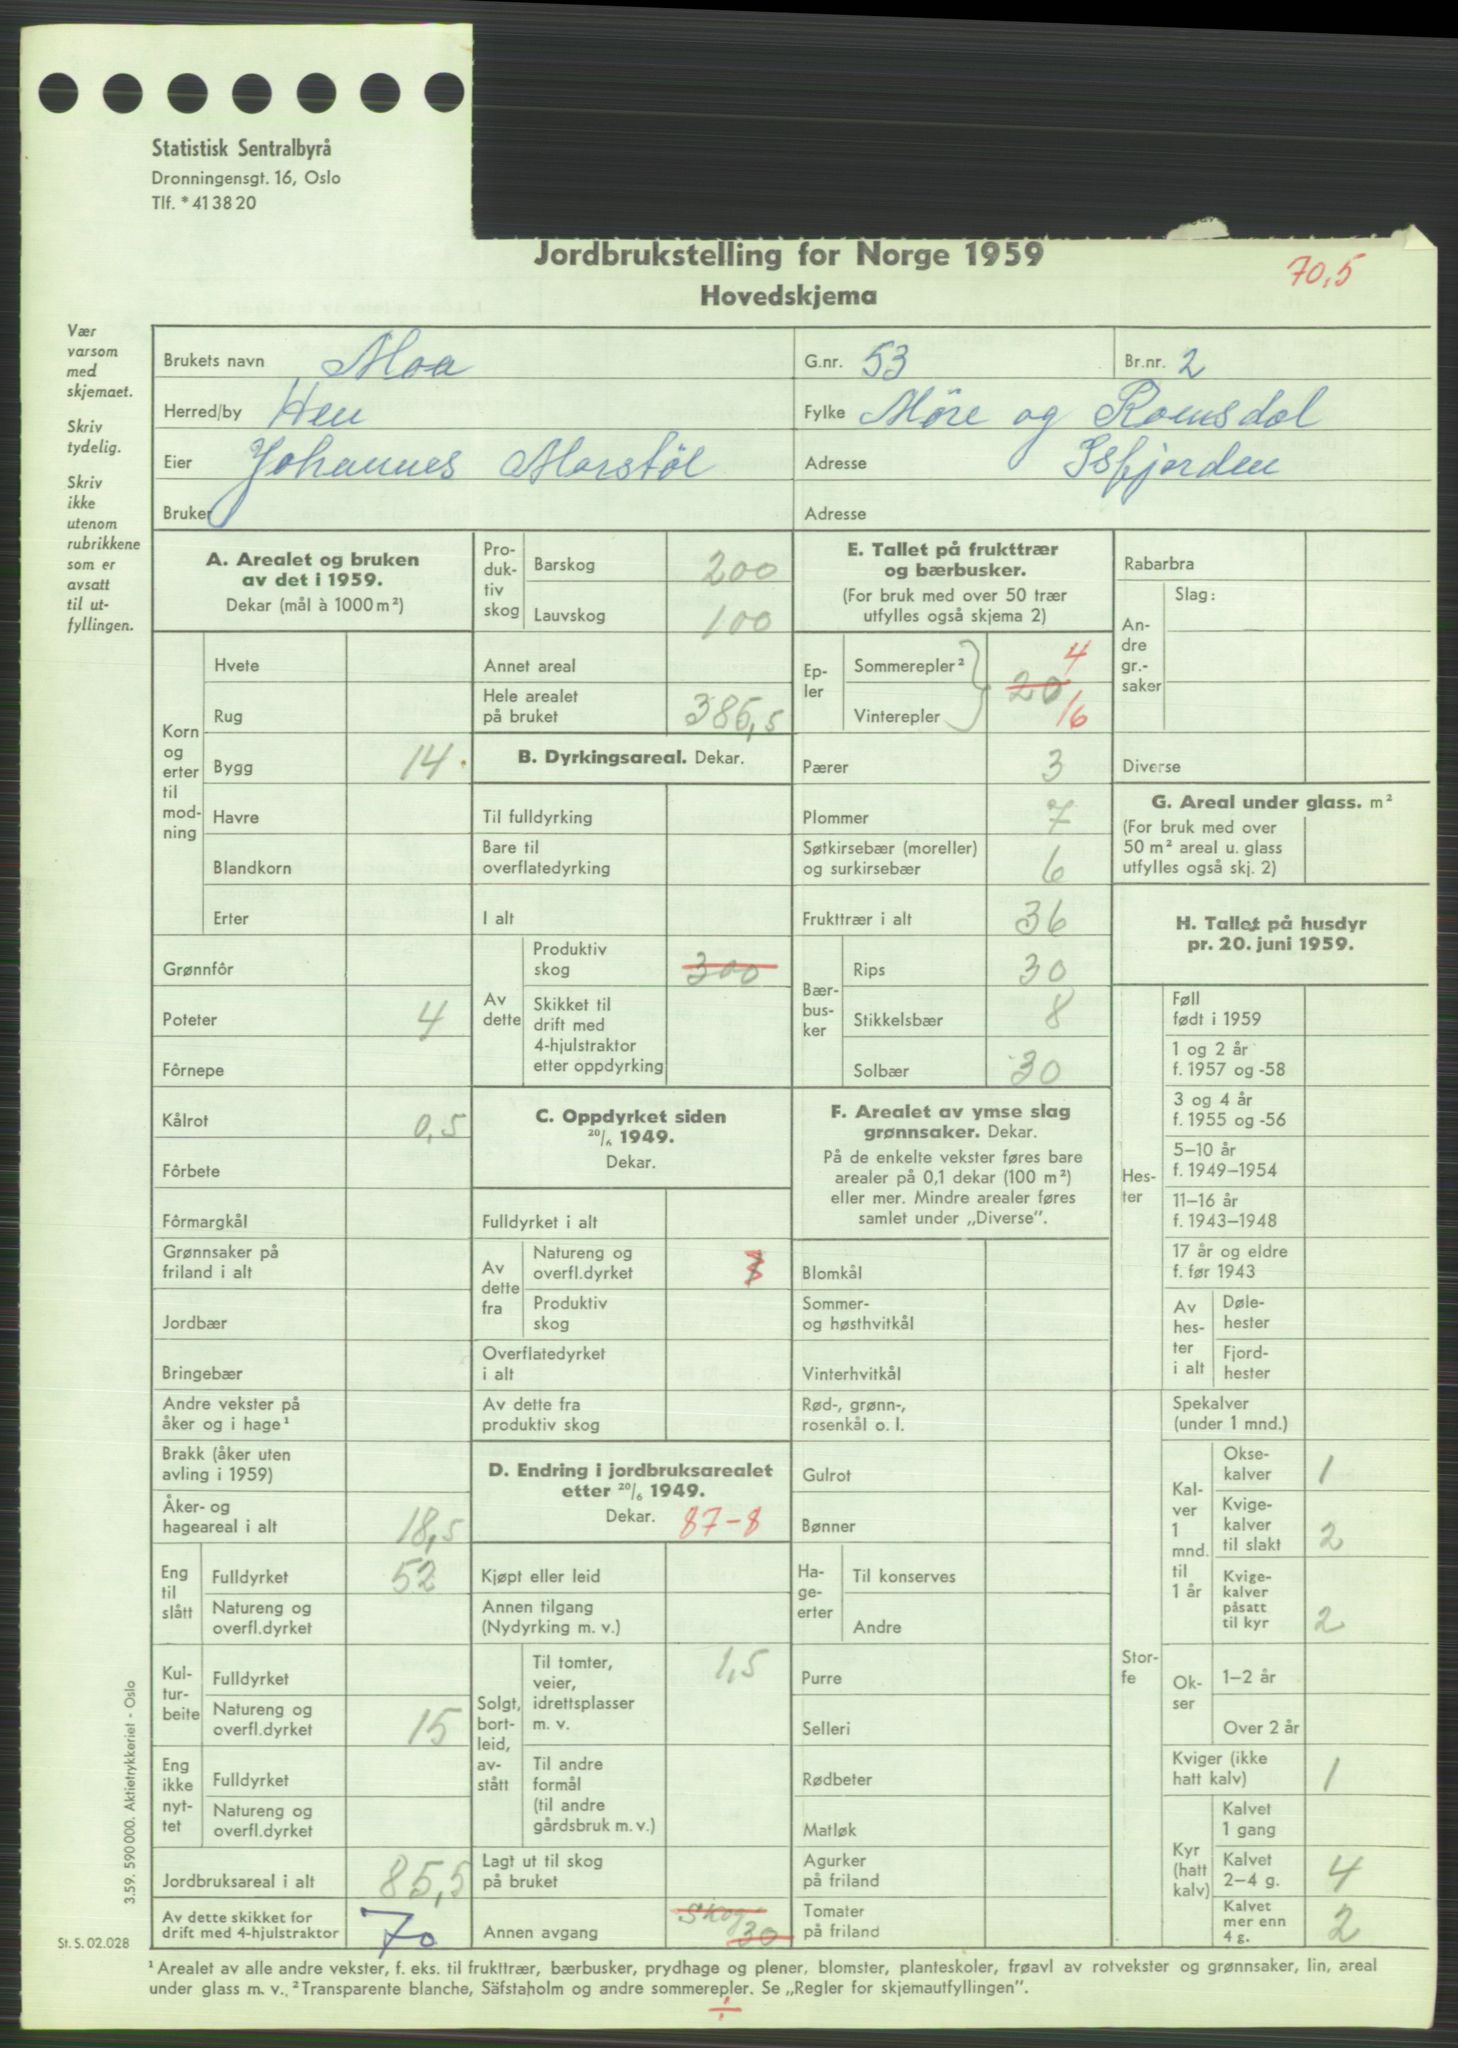 Statistisk Sentralbyrå
Dronningensgt. 16, Oslo
Tlf. * 41 38 20
Jordbrukstelling for Norge 1959
Hovedskjema
70,5
Vær
varsom
med
skjemaet.
Skriv
tydelig.
Skriv
ikke
utenom
rubrikkene
som er
avsatt
til ut-
fyllingen.
Brukets navn Moa
G.nr. 53
Br.nr. 2
Herred/by Hen
Fylke Möre og Romsdal
Eier Johannes Morstöl
Adresse Isfjorden
Bruker
Adresse
A. Arealet og bruken
av det i 1959.
Dekar (mål à 1000 m²)
Korn
og
erter
til
mod-
ning
Hvete
Rug
Bygg 14
Havre
Blandkorn
Erter
Grønnfôr
Poteter 4
Fôrnepe
Kålrot 0,5
Fôrbete
Fôrmargkål
Grønnsaker på
friland i alt
Jordbær
Bringebær
Andre vekster på
åker og i hage¹
Brakk (åker uten
avling i 1959)
Åker- og
hageareal i alt 18,5
Eng
til
slått
Fulldyrket 52
Natureng og
overfl.dyrket
Kul-
tur-
beite
Fulldyrket
Natureng og
overfl.dyrket 15
Eng
ikke
nyt-
tet
Fulldyrket
Natureng og
overfl.dyrket
Jordbruksareal i alt 85,5
Av dette skikket for
drift med 4-hjulstraktor 70
Pro-
duk-
tiv
skog
Barskog 200
Lauvskog 100
Annet areal
Hele arealet
på bruket 385,5
B. Dyrkingsareal. Dekar.
Til fulldyrking
Bare til
overflatedyrking
I alt
Av
dette
Produktiv
skog 300
Skikket til
drift med
4-hjulstraktor
etter oppdyrking
C. Oppdyrket siden
20/6 1949.
Dekar.
Fulldyrket i alt
Av
dette
fra
Natureng og
overfl.dyrket
Produktiv
skog
Overflatedyrket
i alt
Av dette fra
produktiv skog
D. Endring i jordbruksarealet
etter 20/6 1949.
Dekar. 87-8
Kjøpt eller leid
Annen tilgang
(Nydyrking m. v.)
Solgt,
bort-
leid,
av-
stått
Til tomter,
veier,
idrettsplasser
m. v. 1,5
Til andre
formål
(til andre
gårdsbruk m. v.)
Lagt ut til skog
på bruket
Annen avgang Skog 30
E. Tallet på frukttrær
og bærbusker.
(For bruk med over 50 trær
utfylles også skjema 2)
Ep-
ler
Sommerepler² 4
20
Vinterepler 16
Pærer 3
Plommer 7
Søtkirsebær (moreller)
og surkirsebær 6
Frukttrær i alt 36
Bær-
bus-
ker
Rips 30
Stikkelsbær 8
Solbær 30
F. Arealet av ymse slag
grønnsaker. Dekar.
På de enkelte vekster føres bare
arealer på 0,1 dekar (100 m²)
eller mer. Mindre arealer føres
samlet under „Diverse".
Blomkål
Sommer-
og høsthvitkål
Vinterhvitkål
Rød-, grønn-,
rosenkål o. l.
Gulrot
Bønner
Ha-
ge-
erter
Til konserves
Andre
Purre
Selleri
Rødbeter
Matløk
Agurker
på friland
Tomater
på friland
Rabarbra
An-
dre
gr.-
saker
Slag:
Diverse
G. Areal under glass. m²
(For bruk med over
50 m² areal u. glass
utfylles også skj. 2)
H. Tallet på husdyr
pr. 20. juni 1959.
Hes-
ter
Føll
født i 1959
1 og 2 år
f. 1957 og -58
3 og 4 år
f. 1955 og -56
5–10 år
f. 1949–1954
11–16 år
f. 1943–1948
17 år og eldre
f. før 1943
Av
hes-
ter
i alt
Døle-
hester
Fjord-
hester
Stor-
fe
Spekalver
(under 1 mnd.)
Kal-
ver
1
mnd.
til
1 år
Okse-
kalver 1
Kvige-
kalver
til slakt 2
Kvige-
kalver
påsatt
til kyr 2
Ok-
ser
1–2 år
Over 2 år
Kviger (ikke
hatt kalv) 1
Kyr
(hatt
kalv)
Kalvet
1 gang
Kalvet
2–4 g. 4
Kalvet
mer enn
4 g. 2
3.59. 590 000. Aktietrykkeriet - Oslo
St. S. 02.028
¹ Arealet av alle andre vekster, f. eks. til frukttrær, bærbusker, prydhage og plener, blomster, planteskoler, frøavl av rotvekster og grønnsaker, lin, areal
under glass m. v. ² Transparente blanche, Säfstaholm og andre sommerepler. Se „Regler for skjemautfyllingen".
÷